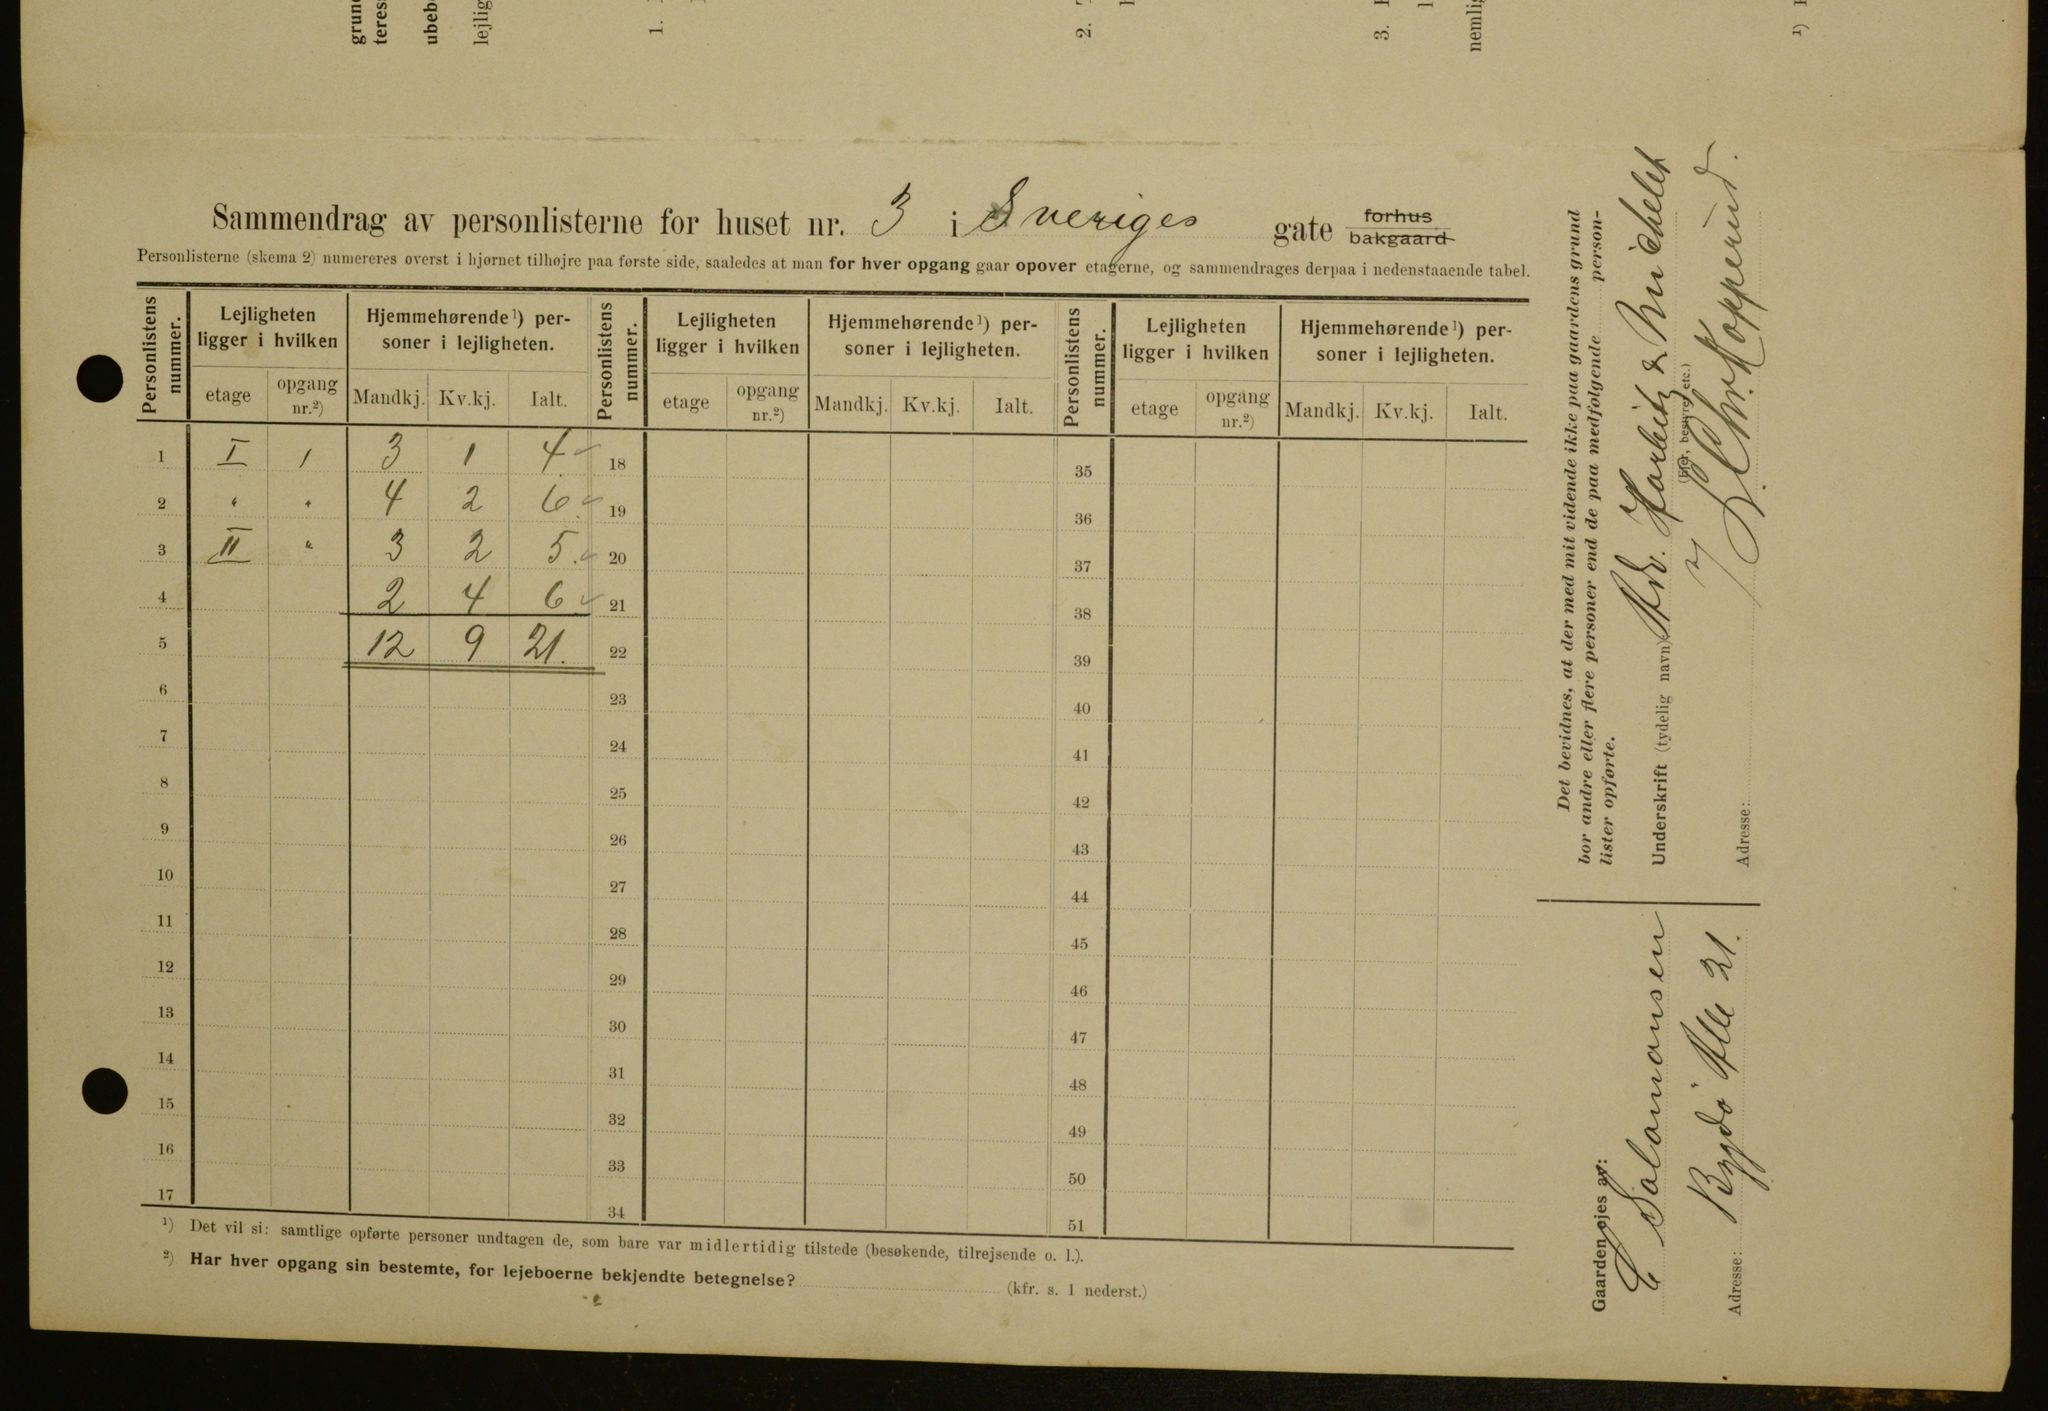 grun
teres
ubeb
lejlig
1.
2.
3.
nemlig
¹)
Sammendrag av personlisterne for huset nr. 3 i Sveriges gate forhus bakgaard
Personlisterne (skema 2) numereres øverst i hjørnet tilhøjre paa første side, saaledes at man for hver opgang gaar opover etagerne, og sammendrages derpaa i nedenstaaende tabel.
Personlistens nummer. Lejligheten ligger i hvilken Hjemmehørende¹) personer i lejligheten. Personlistens nummer. Lejligheten ligger i hvilken Hjemmehørende¹) personer i lejligheten. Personlistens nummer. Lejligheten ligger i hvilken Hjemmehørende¹) personer i lejligheten.
etage opgang nr.²) Mandkj. Kv.kj. Ialt. etage opgang nr.²) Mandkj. Kv.kj. Ialt. etage opgang nr.²) Mandkj. Kv.kj. Ialt.
1 I 1 3 1 4 18 35
2 " " 4 2 6 19 36
3 II " 3 2 5 20 37
4 2 4 6 21 38
5 12 9 21. 22 39
6 23 40
7 24 41
8 25 42
9 26 43
10 27 44
11 28 45
12 29 46
13 30 47
14 31 48
15 32 49
16 33 50
17 34 51
¹) Det vil si: samtlige opførte personer undtagen de, som bare var midlertidig tilstede (besøkende, tilrejsende o. l.).
²) Har hver opgang sin bestemte, for lejeboerne bekjendte betegnelse? (kfr. s. 1 nederst.)
Det bevidnes, at der med mit vidende ikke paa gaardens grund
bor andre eller flere personer end de paa medfølgende person-
lister opførte.
Underskrift (tydelig navn) Adv. Harbitz & Michelet
(Ejer, bestyrer etc.)
Chr. Kopperud.
Adresse:
Gaarden ejes av:
C Salomonsen
Adresse: Bygdö Alle 21.